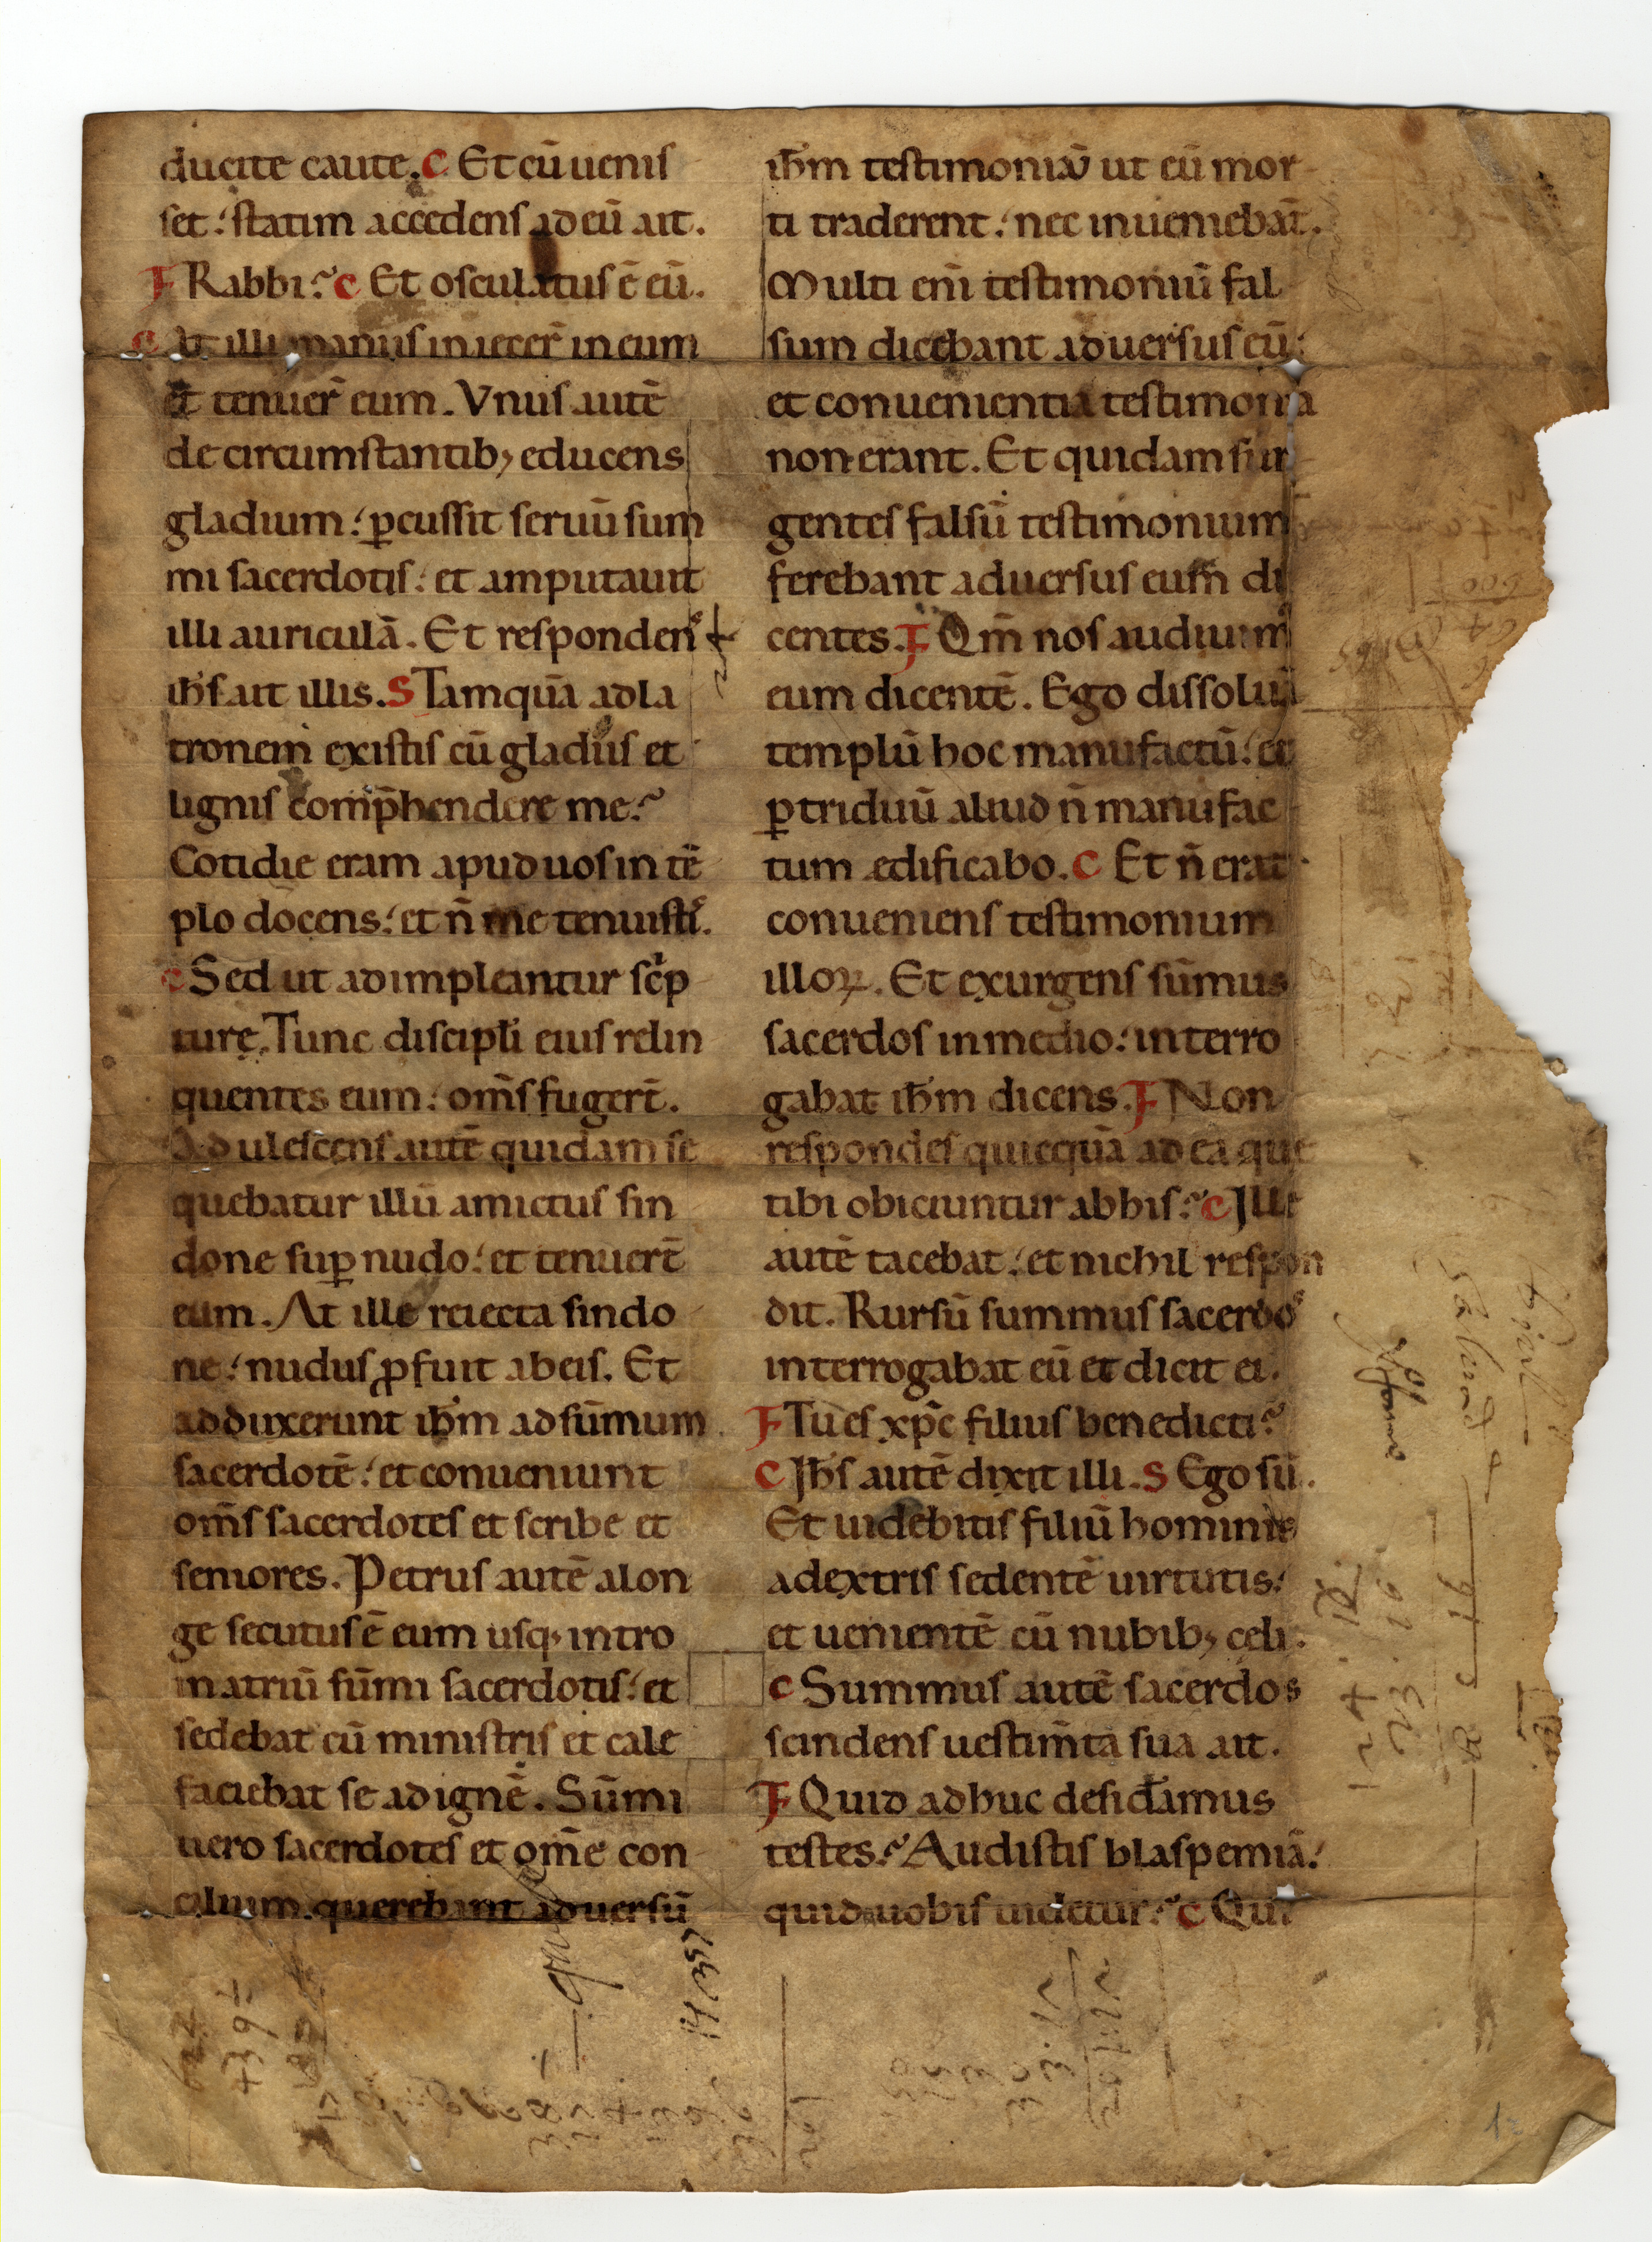 ducite caute. C Et cū uenis
set: statim accedens ad eū ait.
F Rabbi? C Et osculatus ē eū.
C At illi manus iniecer̄ in eum
et tenuer̄ eum. Vnus autē
de circumstantib; educens
gladium: ꝑcussit seruū sum
mi sacerdotis: et amputauit
illi auriculā. Et respondens
ih̄s ait illis. S Tamquā ad la
tronem existis cū gladiis et
lignis comp̄hendere me?
Cotidie eram apud uos in tē
plo docens: et n̄ me tenuistis.
C Sed ut adimpleantur sc̄p
ture. Tunc discipli eius relin
quentes eum: om̄s fugert̄.
Adulescens autē quidam se
quebatur illū amictus sin
done suꝑ nudo: et tenuert̄
eum. At ille reiecta sindo
ne: nudus ꝓfuit ab eis. Et
adduxerunt ih̄m ad sūmum
sacerdotē: et conueniunt
om̄s sacerdotes et scribe et
seniores. Petrus autē alon
ge secutus ē eum usq; intro
in atriū sūmi sacerdotis: et
sedebat cū ministris et cale
faciebat se ad ignē. Sūmi
uero sacerdotes et om̄e con
cilium querebant aduersū
ih̄m testimoniū ut eū mor
ti traderent: nec inueniebāt.
Multi eni̅ testimoniū fal
sum dicebant aduersus eū:
et conuenientia testimonia
non erant. Et quidam sur
gentes falsū testimonium
ferebant aduersus eum di
centes. F Qm̄ nos audiuim
eum dicentē. Ego dissoluā
templū hoc manufactū: et
ꝑ triduū aliud n̄ manufac
tum edificabo. C Et n̄ erat
conueniens testimonium
illoꝝ. Et exurgens sūmus
sacerdos in medio: interro
gabat ih̄m dicens. F Non
respondes quicquā ad ea que
tibi obiciuntur ab his? C Ille
autē tacebat: et nichil respon
dit. Rursū summus sacerdos
interrogabat eū et dicit ei.
F Tu es xp̄c filius benedicti?
C Ih̄s autē dixit illi. S Ego sū.
Et uidebitis filiū hominis
adextris sedentē uirtutis:
et uenientē cū nubib; cęli.
C Summus autē sacerdos
scindens uestim̄ta sua ait.
F Quid adhuc desid̄amus
testes? Audistis blaspemiā:
quid uobis uidetur? C Qui